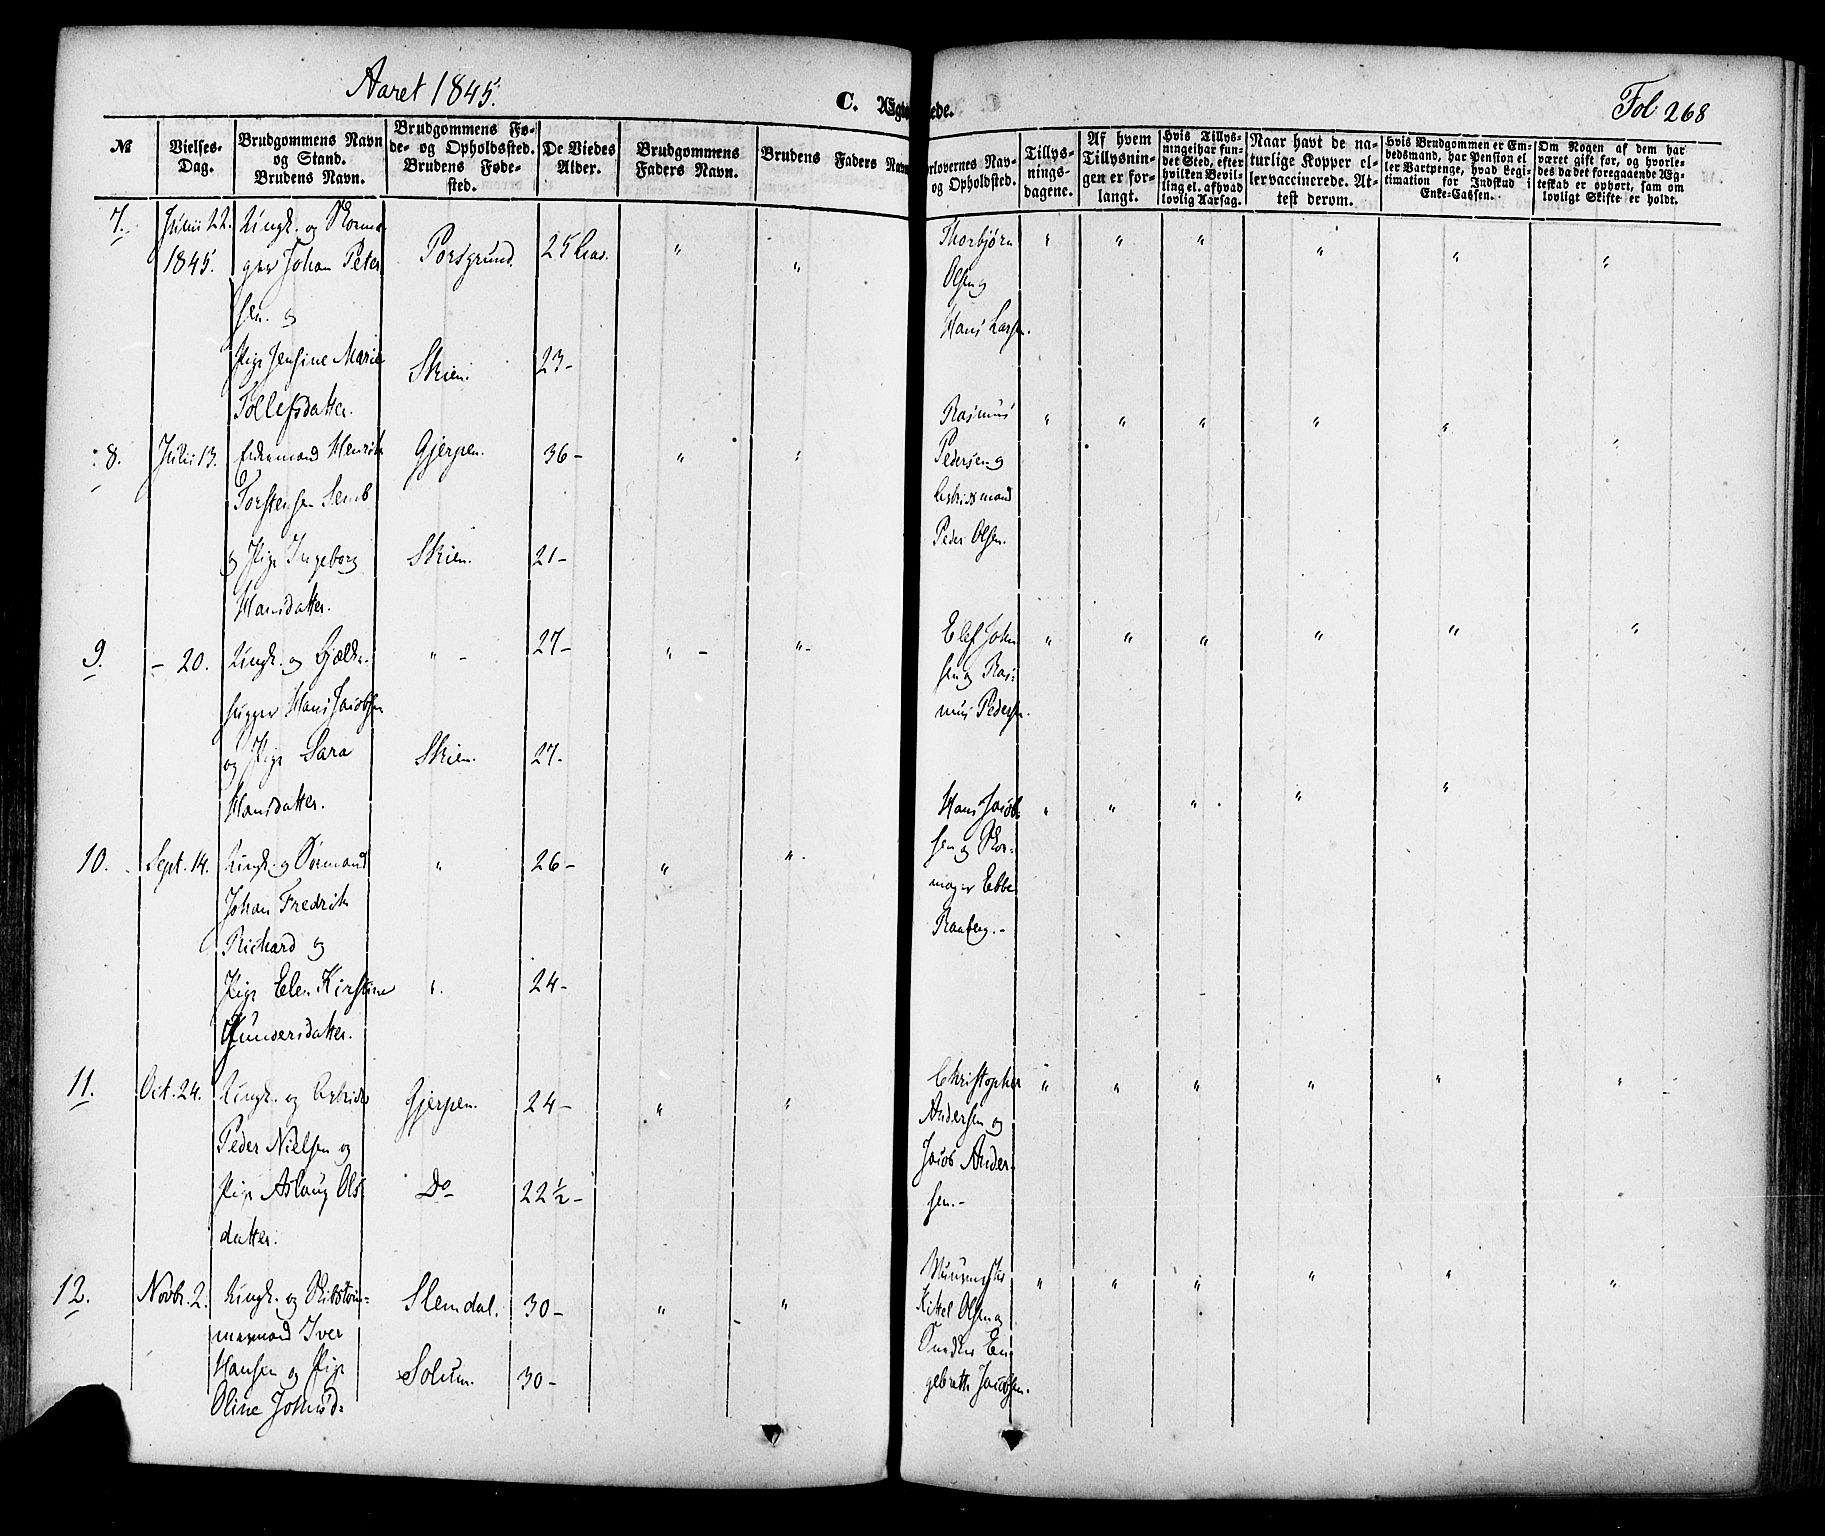 Aaret 1845.
C. Ægte
ede.
Fol. 268
№
Vielses-
Dag.
Brudgommens Navn
og Stand.
Brudens Navn.
Brudgommens Fø-
de- og Opholdsted.
Brudens Føde-
sted.
De Viedes
Alder.
Brudgommens
Faders Navn.
Brudens Faders Navn
orlovernes Nav-
og Opholdsted.
Tillys-
nings-
dagene.
Af hvem
Tillysnin-
gen er for-
langt.
Hvis Tillys-
ningei har fun-
det Sted, efter
hvilken Bevil-
ling el. afhvad
lovlig Aarsag.
Naar havt de na-
turlige Kopper el-
ler vaccinerede. At-
test derom.
hvis Brudgommen er Em-
bedsmand, har Pension el
ler Vartpenge, hvad Legi-
timation for Indskud i
Enke-Cassen.
Om Nogen af dem har
været gift før, og hvorle-
des da det foregaaende Æg-
teskab er ophørt, sam om
lovligt Skifte er holdt.
7.
Junii 22.
1845.
Ungk. og Skoma
ger Johan Peter
sen. og
Pige Jensine Marie
Tollefsdatter.
Porsgrund.
Skien.
25
23-
Thorbjørn
Olsen og
Hans Larsen.
8.
Julii 13.
Henrik
Torstensen Semb
og Pige Ingeborg
Hansdatter.
Gjerpen.
Skien.
36-
21-
Rasmus
Pedersen og
mand
Peder Olsen.
9.
- 20.
Ungk. og Bjælke-
hugger Hans Jacobsen
og Pige Sara
Hansdatter.
Skien.
27-
27-
Elef John
sen og Ras-
mus Pedersen.
10.
Sept. 14.
Ungk. og Sømand
Johan Fredrik
Richard og
Pige Elen Kirstine
Gundersdatter.
26-
24-
Hans Jacob-
sen og Sko-
mager Ebbe
Raaberg.-
11.
Oct. 24.
Ungk. og
Peder Nielsen og
Pige Aslaug Ols
datter.
Gjerpen.
Do
24-
22½-
Christopher
Andersen og
Jacob Ander-
sen.-
12.
Novbr. 2.
Ungk. og Skibstøm-
mermand Iver
Hansen og Pige
Oline
Slemdal.
Solum.
30-
30-
Muurmester
Kittel Olsen og
Snedker En
gebreth Jacobsen.